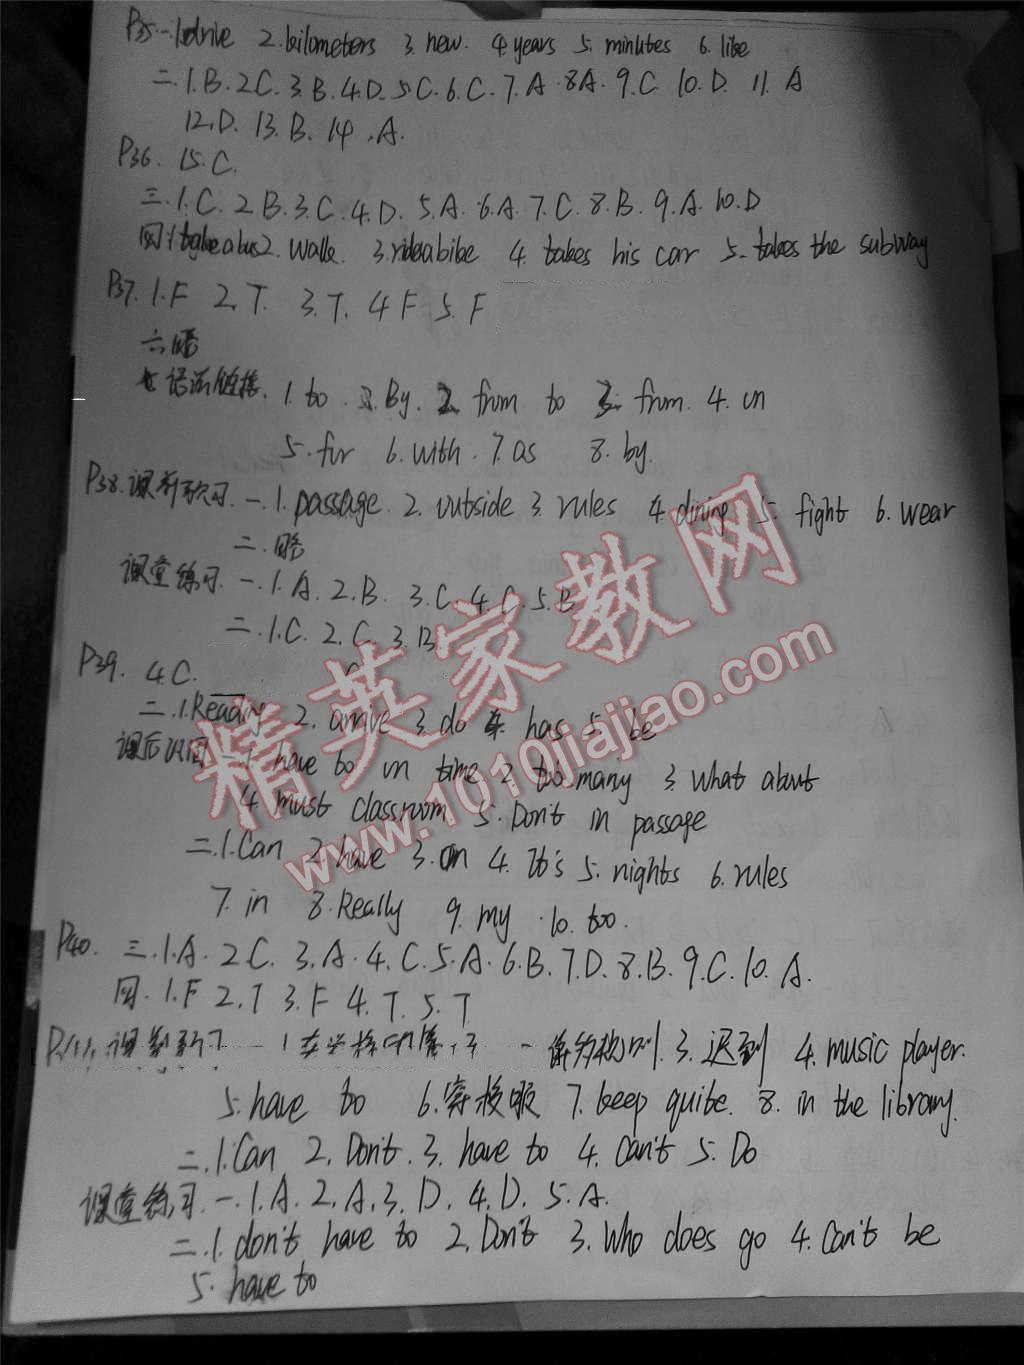 P35 一.1.drive 2.kilometers 3.new. 4.years 5.minutes 6.like
二.1.B.2C.3.B.4.D.5C.6.C.7.A.8A.9.C 10.D. 11.A
12.D. 13.B. 14.A.
P36. 15.C.
三.1.C.2.B.3.C.4.D.5.A.6.A.7.C.8.B.9.A.10.D
四.1.take a bus2. walk. 3.ride a bike 4. takes his car 5. takes the subway
P37.1.F 2.T. 3.T. 4 F 5.F
六.略
七语法链接. 1.to. By. 2. from to 3. from. 4. on
5. for 6. with. 7. as 8. by.
P38.课前预习. 一.1.passage. 2. outside 3. rules 4. dining 5. fight 6. wear
二.略
课堂练习. 一.1.A. 2.B. 3.C. 4.C. 5.B
二.1.C. 2.C. 3.B
P39. 4.C.
二.1.Reading 2. arrive 3. do 4. has 5. be
课后巩固 一.1 have to on time 2. too many 3. What about
4 must classroom 5. Don't in passage
二.1.Can 2. have 3. on 4. It's 5. nights 6. rules
7. in 8. Really 9. my 10. too.
P40. 三.1.A. 2.C. 3.A. 4.C. 5.A. 6.B. 7.D. 8.B. 9.C. 10.A.
四. 1.F 2.T 3.F 4.T. 5.T
课前预习 一 1 3. 迟到 4. music player.
5. have to 6. 穿校服 7. keep quite. 8. in the library.
二.1.Can 2. Don't. 3. have to 4. Can't 5. Do
课堂练习. 一.1.A. 2.A. 3.D. 4.D. 5.A.
二.1. don't have to 2. Don't 3. Who does go 4. Can't be
5. have to
精英家教网
www.1010jiajiao.com